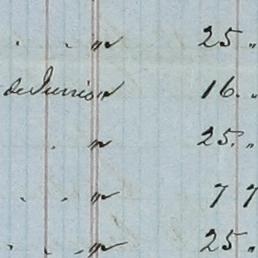 " 25 "
de Junio " 16. "
" 25. "
" 7 7
" 25 "